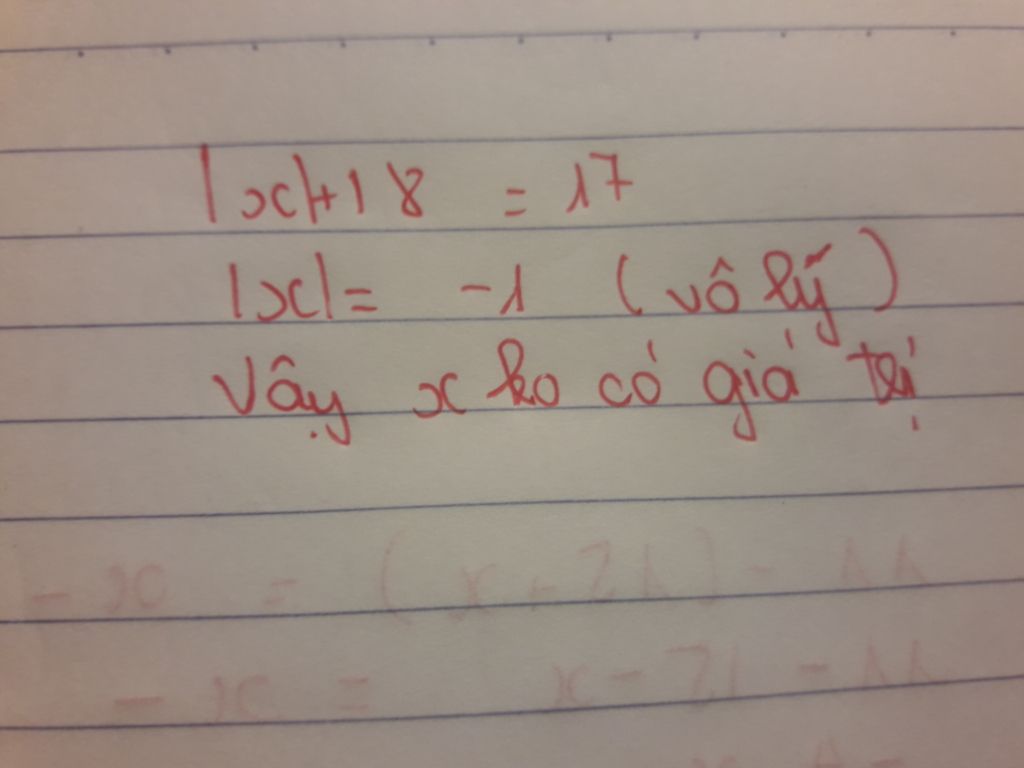 |x|+18 = 17
|x| = -1 (vô lý)
Vậy x ko có giá trị